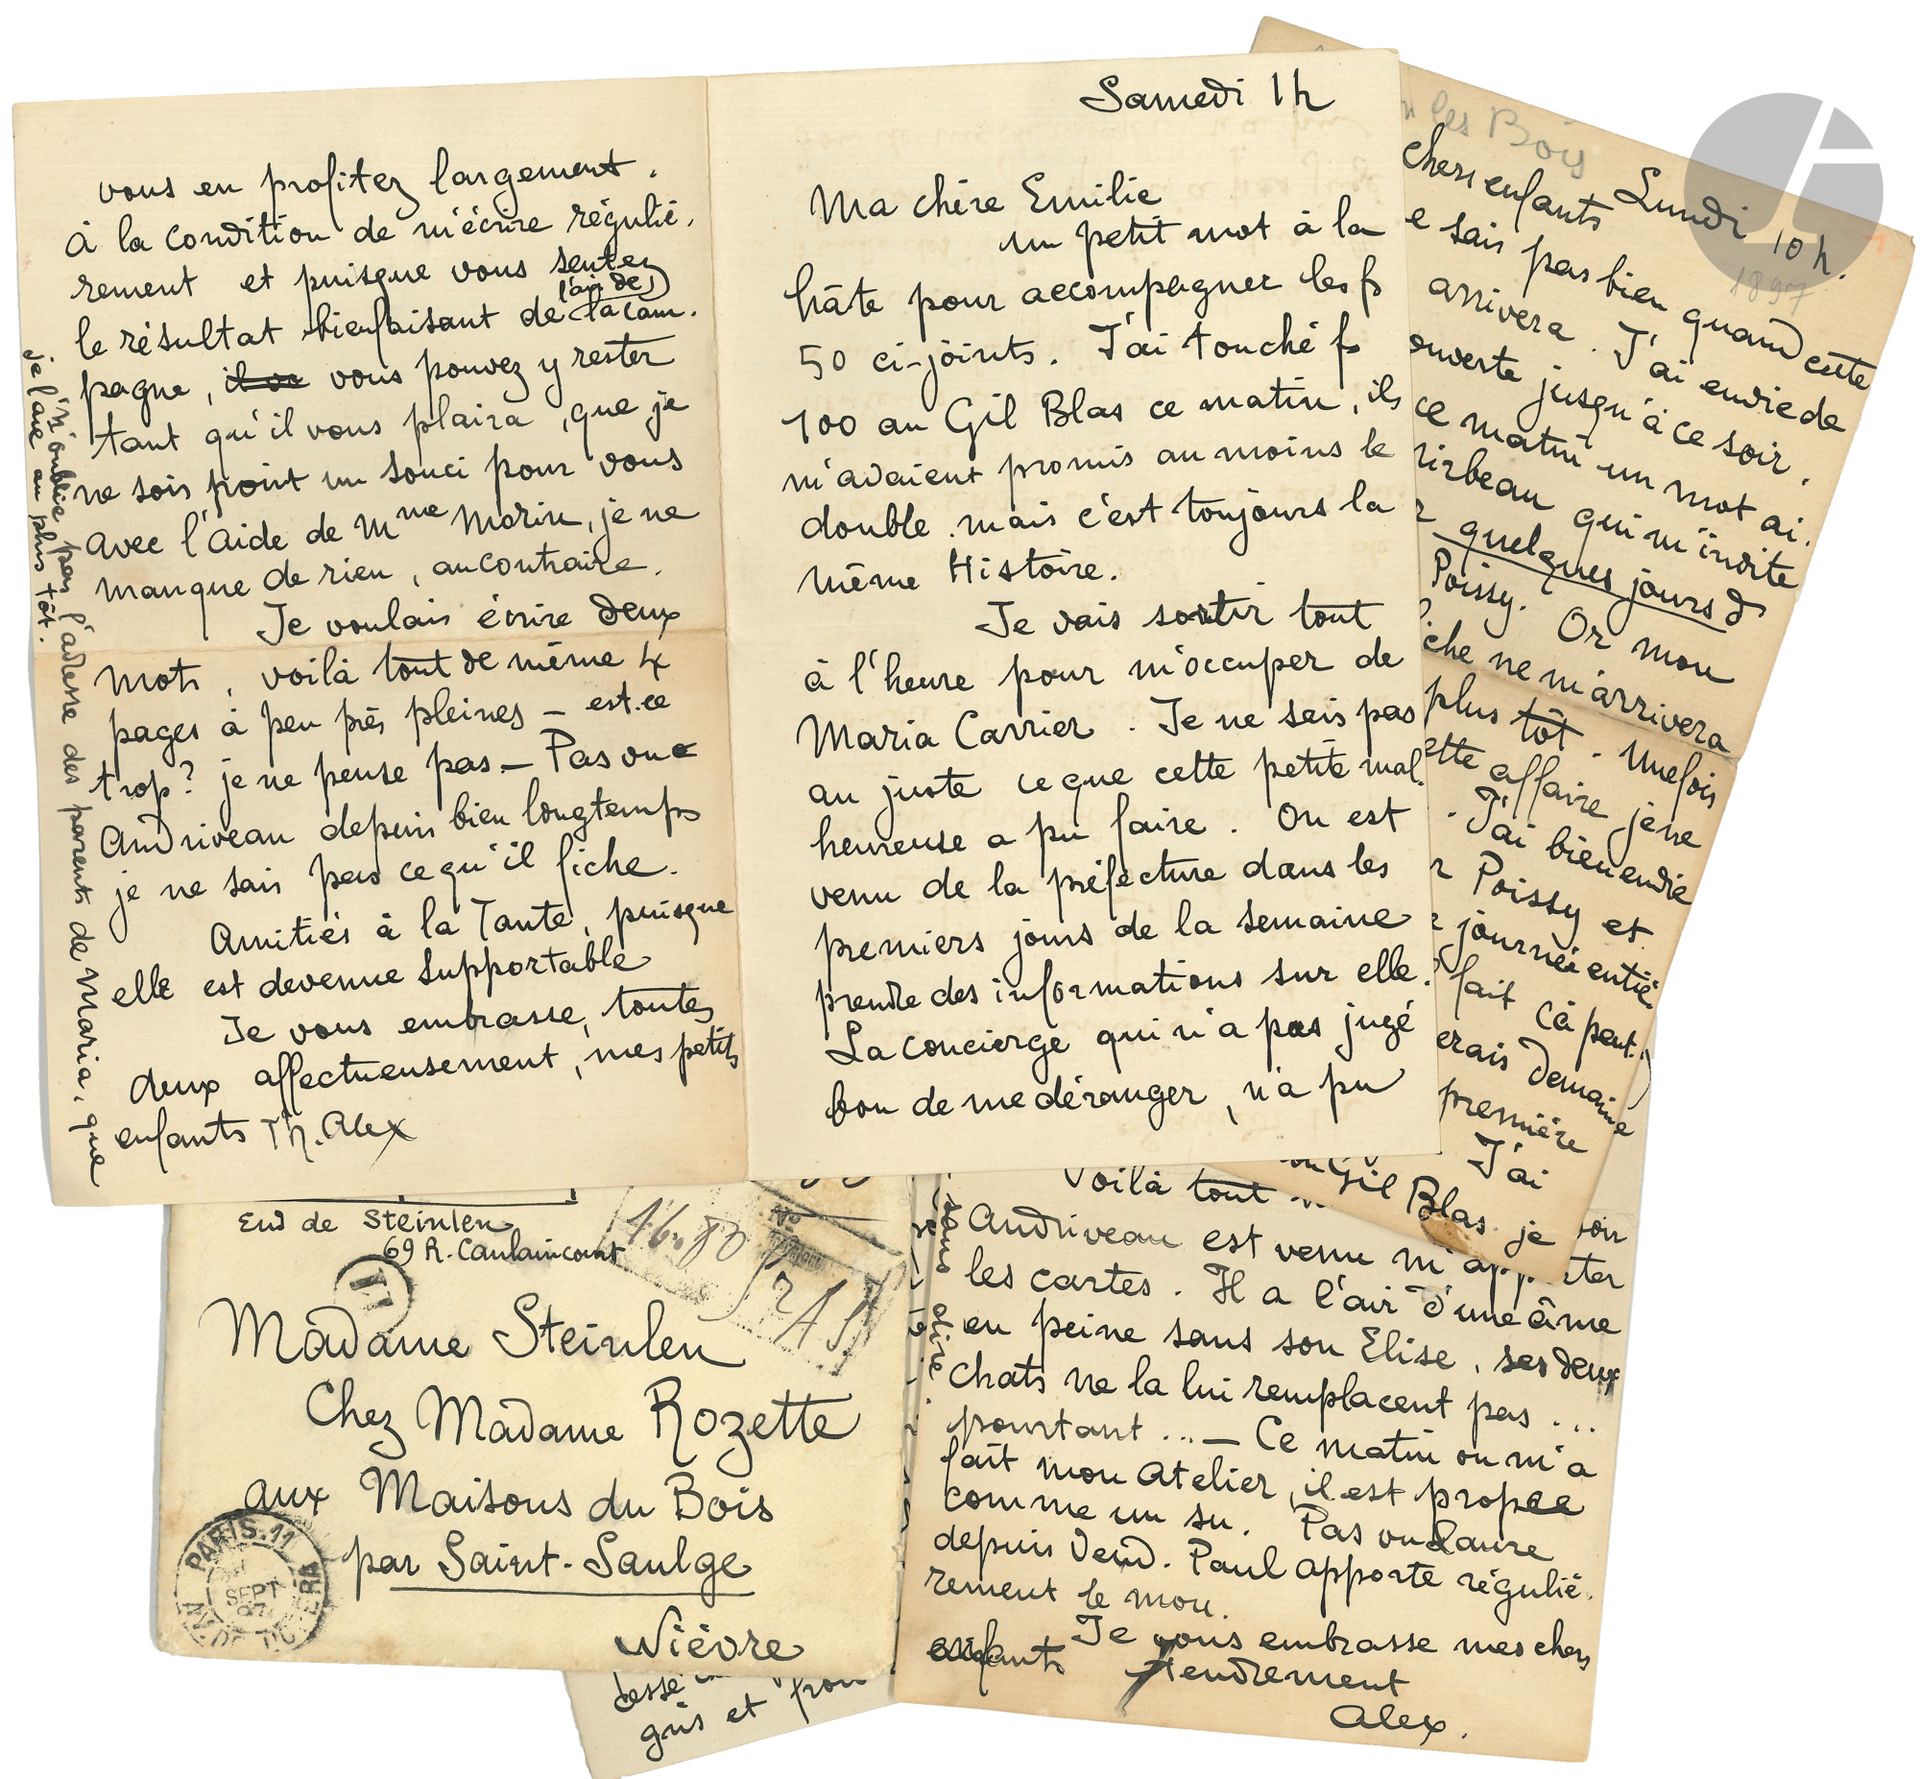 Samedi 1h
Ma chère Emilie
un petit mot à la
hâte pour accompagner les f
50 ci-joints. J'ai touché f
100 au Gil Blas ce matin, ils
m'avaient promis au moins le
double. mais c'est toujours la
même Histoire.
Je vais sortir tout
à l'heure pour m'occuper de
Maria Carrier. Je ne sais pas
au juste ce que cette petite mal
heureuse a pu faire. On est
venu de la préfecture dans les
premiers jours de la semaine
prendre des informations sur elle.
La concierge qui n'a pas jugé
bon de me déranger, n'a pu
vous en profitez largement.
à la condition de m'écrire réguliè-
rement et puisque vous sentez
l'air de
le résultat bienfaisant de la cam-
pagne, vous pouvez y rester
tant qu'il vous plaira, que je
ne sois point un souci pour vous
avec l'aide de Mme Morin, je ne
manque de rien, au contraire.
Je voulais écrire deux
mots, voilà tout de même 4
pages à peu près pleines – est-ce
trop? je ne pense pas – Pas vu
Andriveau depuis bien longtemps
je ne sais pas ce qu'il fiche.
Amitiés à la Tante, puisque
elle est devenue supportable
Je vous embrasse, toutes
deux affectueusement, mes petits
enfants Th. Alex
N'oublie pas l'adresse des parents de Maria, que
je l'aie au plus tôt.
les Bois
Lundi 10 h.
1897
chers enfants
e sais pas bien quand cette
arrivera. J'ai envie de
ouverte jusqu'à ce soir.
ce matin un mot ai-
irbeau qui m'invite
quelques jours d
Poissy. Or mon
che ne m'arrivera
plus tôt. Une fois
ette affaire je ne
. J'ai bien envie
r Poissy et
journée entiè
fait çà peut.
erais demain
première
J'ai
Gil Blas. je
Voilà tout
voir
Andriveau est venu m'apporter
les cartes. Il a l'air d'une âme
en peine sans son Elise, ses deux
chats ne la lui remplacent pas...
pourtant... – Ce matin on m'a
fait mon atelier, il est propre
comme un su. Pas vu Laure
depuis Vend. Paul apporte réguliè-
rement le mou.
Je vous embrasse mes chers
enfants tendrement
Alex.
Env de Steinlen
69 R. Caulaincourt
Madame Steinlen
Chez Madame Rozette
aux Maisons du Bois
par Saint-Saulge
Nièvre
PARIS.11
SEPT
97
gris et